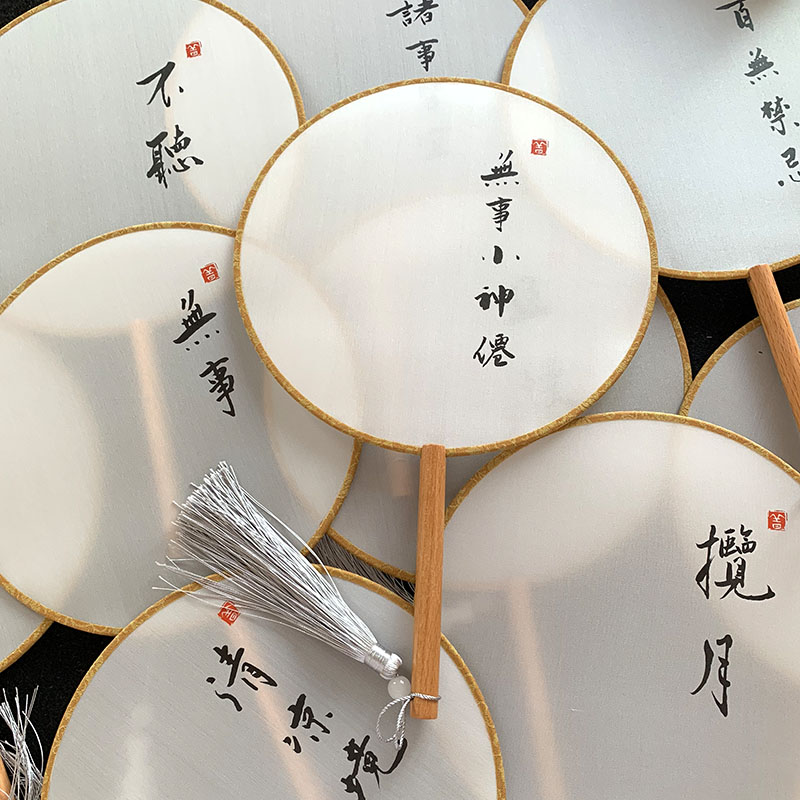 不聽
諸事
百無禁忌
無事小神僊
無事
攬月
清凉